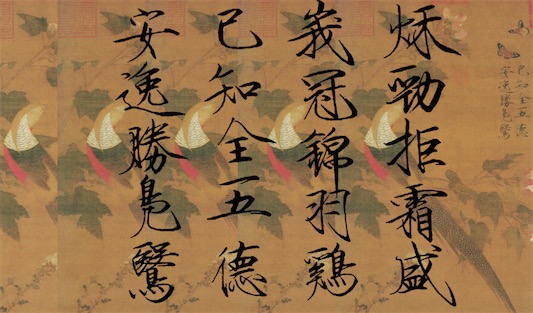 已知全五德
安逸勝鳧鷖
秋勁拒霜盛
峩冠錦羽鷄
已知全五德
安逸勝鳧鷖